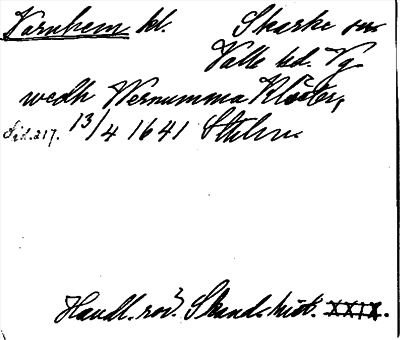 Varnhem kl. Skarke sn
Valle hd. Vg
wedh Wernumma Kloster,
Sid. 217. 13/4 1641 Sthlm.
Handl. rör. Skand. hist. XXIX.